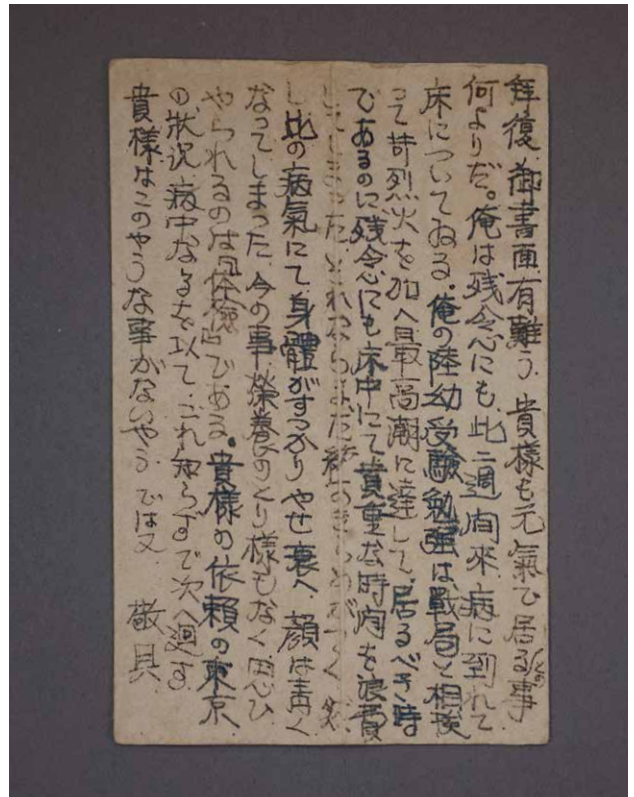 拝復 御書面有難う、貴様も元氣で居るとの事
何よりだ。俺は残念にも此二週间来病に到れて
床についてねる。俺の陸幼受験勉強は戰局と相挨
って苛烈火を加へ最高潮に達して居るべき時
であるのに残念にも床中にて貴重な時间を浪費
してしまった、これならまだあきらめがつく
し此の病氣にて身體がすっかりやせ衰へ顔は青く
なってしまった 今の事、榮養のとり様もなく思ひ
やられるのは「体檢」である。貴様の依頼の東京
の狀況、病中なるを以てこれ知らすで次へ廻す
貴様はこのやうな事がないやう では又 敬具